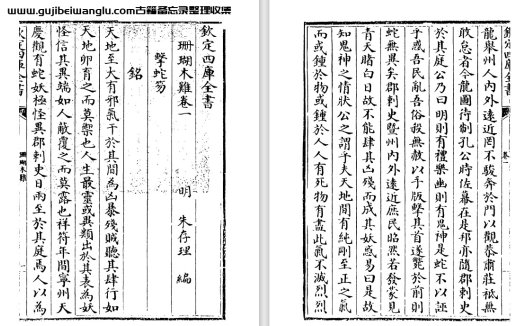 www.gujibeiwanglu.com古籍备忘录整理收集
欽定四庫全書
珊瑚木難卷一
明 朱存理 編
擊蛇笏
銘
天地至大有邪氣干於其間為凶暴殘賊聽其肆行如
天地卵育之而莫禦也人生最靈或異類出於其表為妖
怪信其異端如人蔽覆之而莫露也祥符年間寧州天
慶觀有蛇妖極怪異郡刺史日兩至於其庭焉人以為
欽定四庫全書
珊瑚木難
龍舉州人內外遠近罔不駿奔於門以觀恭肅莊祗無
敢怠者今龍圖待制孔公時佐幕在是邦亦隨郡刺史
於其庭公乃曰明則有禮樂幽則有鬼神是蛇不以誣
乎惑吾民亂吾俗殺無赦以手版擊其首遂斃於前則
蛇無異矣郡刺史暨州內外遠近庶民昭然若發蒙見
青天睹白日故不能肆其凶殘而成其妖惑易曰是故
知鬼神之情狀公之謂乎夫天地間有純剛至正之氣
而或鍾於物或鍾於人人有死物有盡此氣不滅烈烈